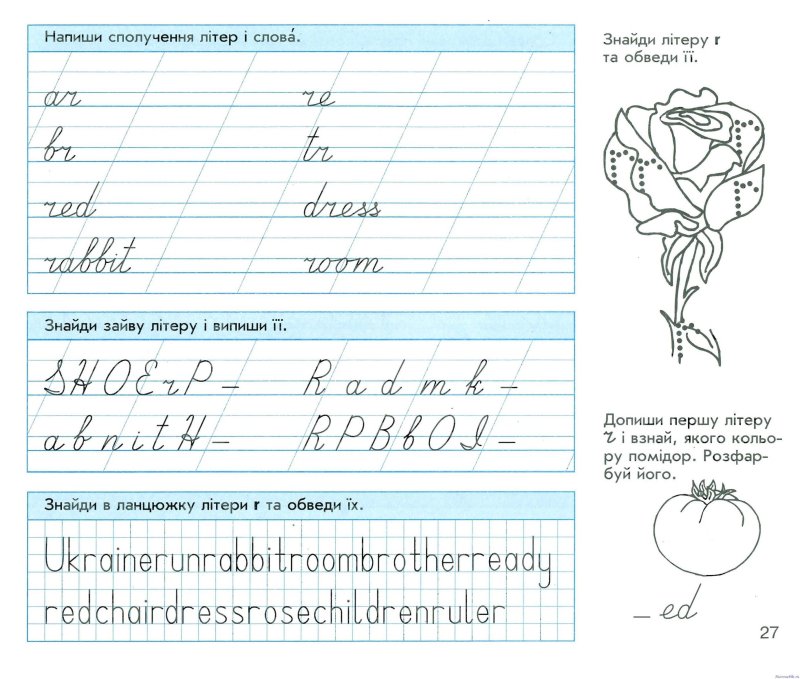 Напиши сполучення літер і слова́.
ar re
br tr
red dress
rabbit room
Знайди зайву літеру і випиши її.
S H O E r P –
R a d m k –
a b n i t H –
R P B b O I –
Знайди в ланцюжку літери r та обведи їх.
Ukrainerunrabbitroombrotherready
redchairdressrosechildrenruler
Знайди літеру r
та обведи її.
Допиши першу літеру
r і взнай, якого кольо-
ру помідор. Розфар-
буй його.
_ ed
27